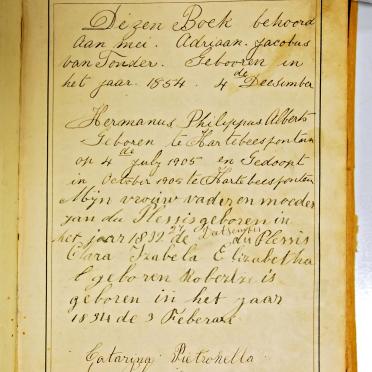 Dezen Boek behoord
aan mei. Adriaan. Jacobus
van Tonder. Gebooren in
het jaar. 1854. 4de Deesember
Hermanus Philippus Alberts
Geboren te Hartebeesfontein
op 4de July 1905 en Gedoopt
in October 1905 te Hartebeesfontein
Mijn vrouw vader en moeder
jan du Plessis geboren in
het jaar 1832 de 27 Datsember du Plessis
Clara Izabela Elizabetha
geboren Robertze is
geboren in het jaar
1834 de 3 Feberarie
Catarina Pietronella